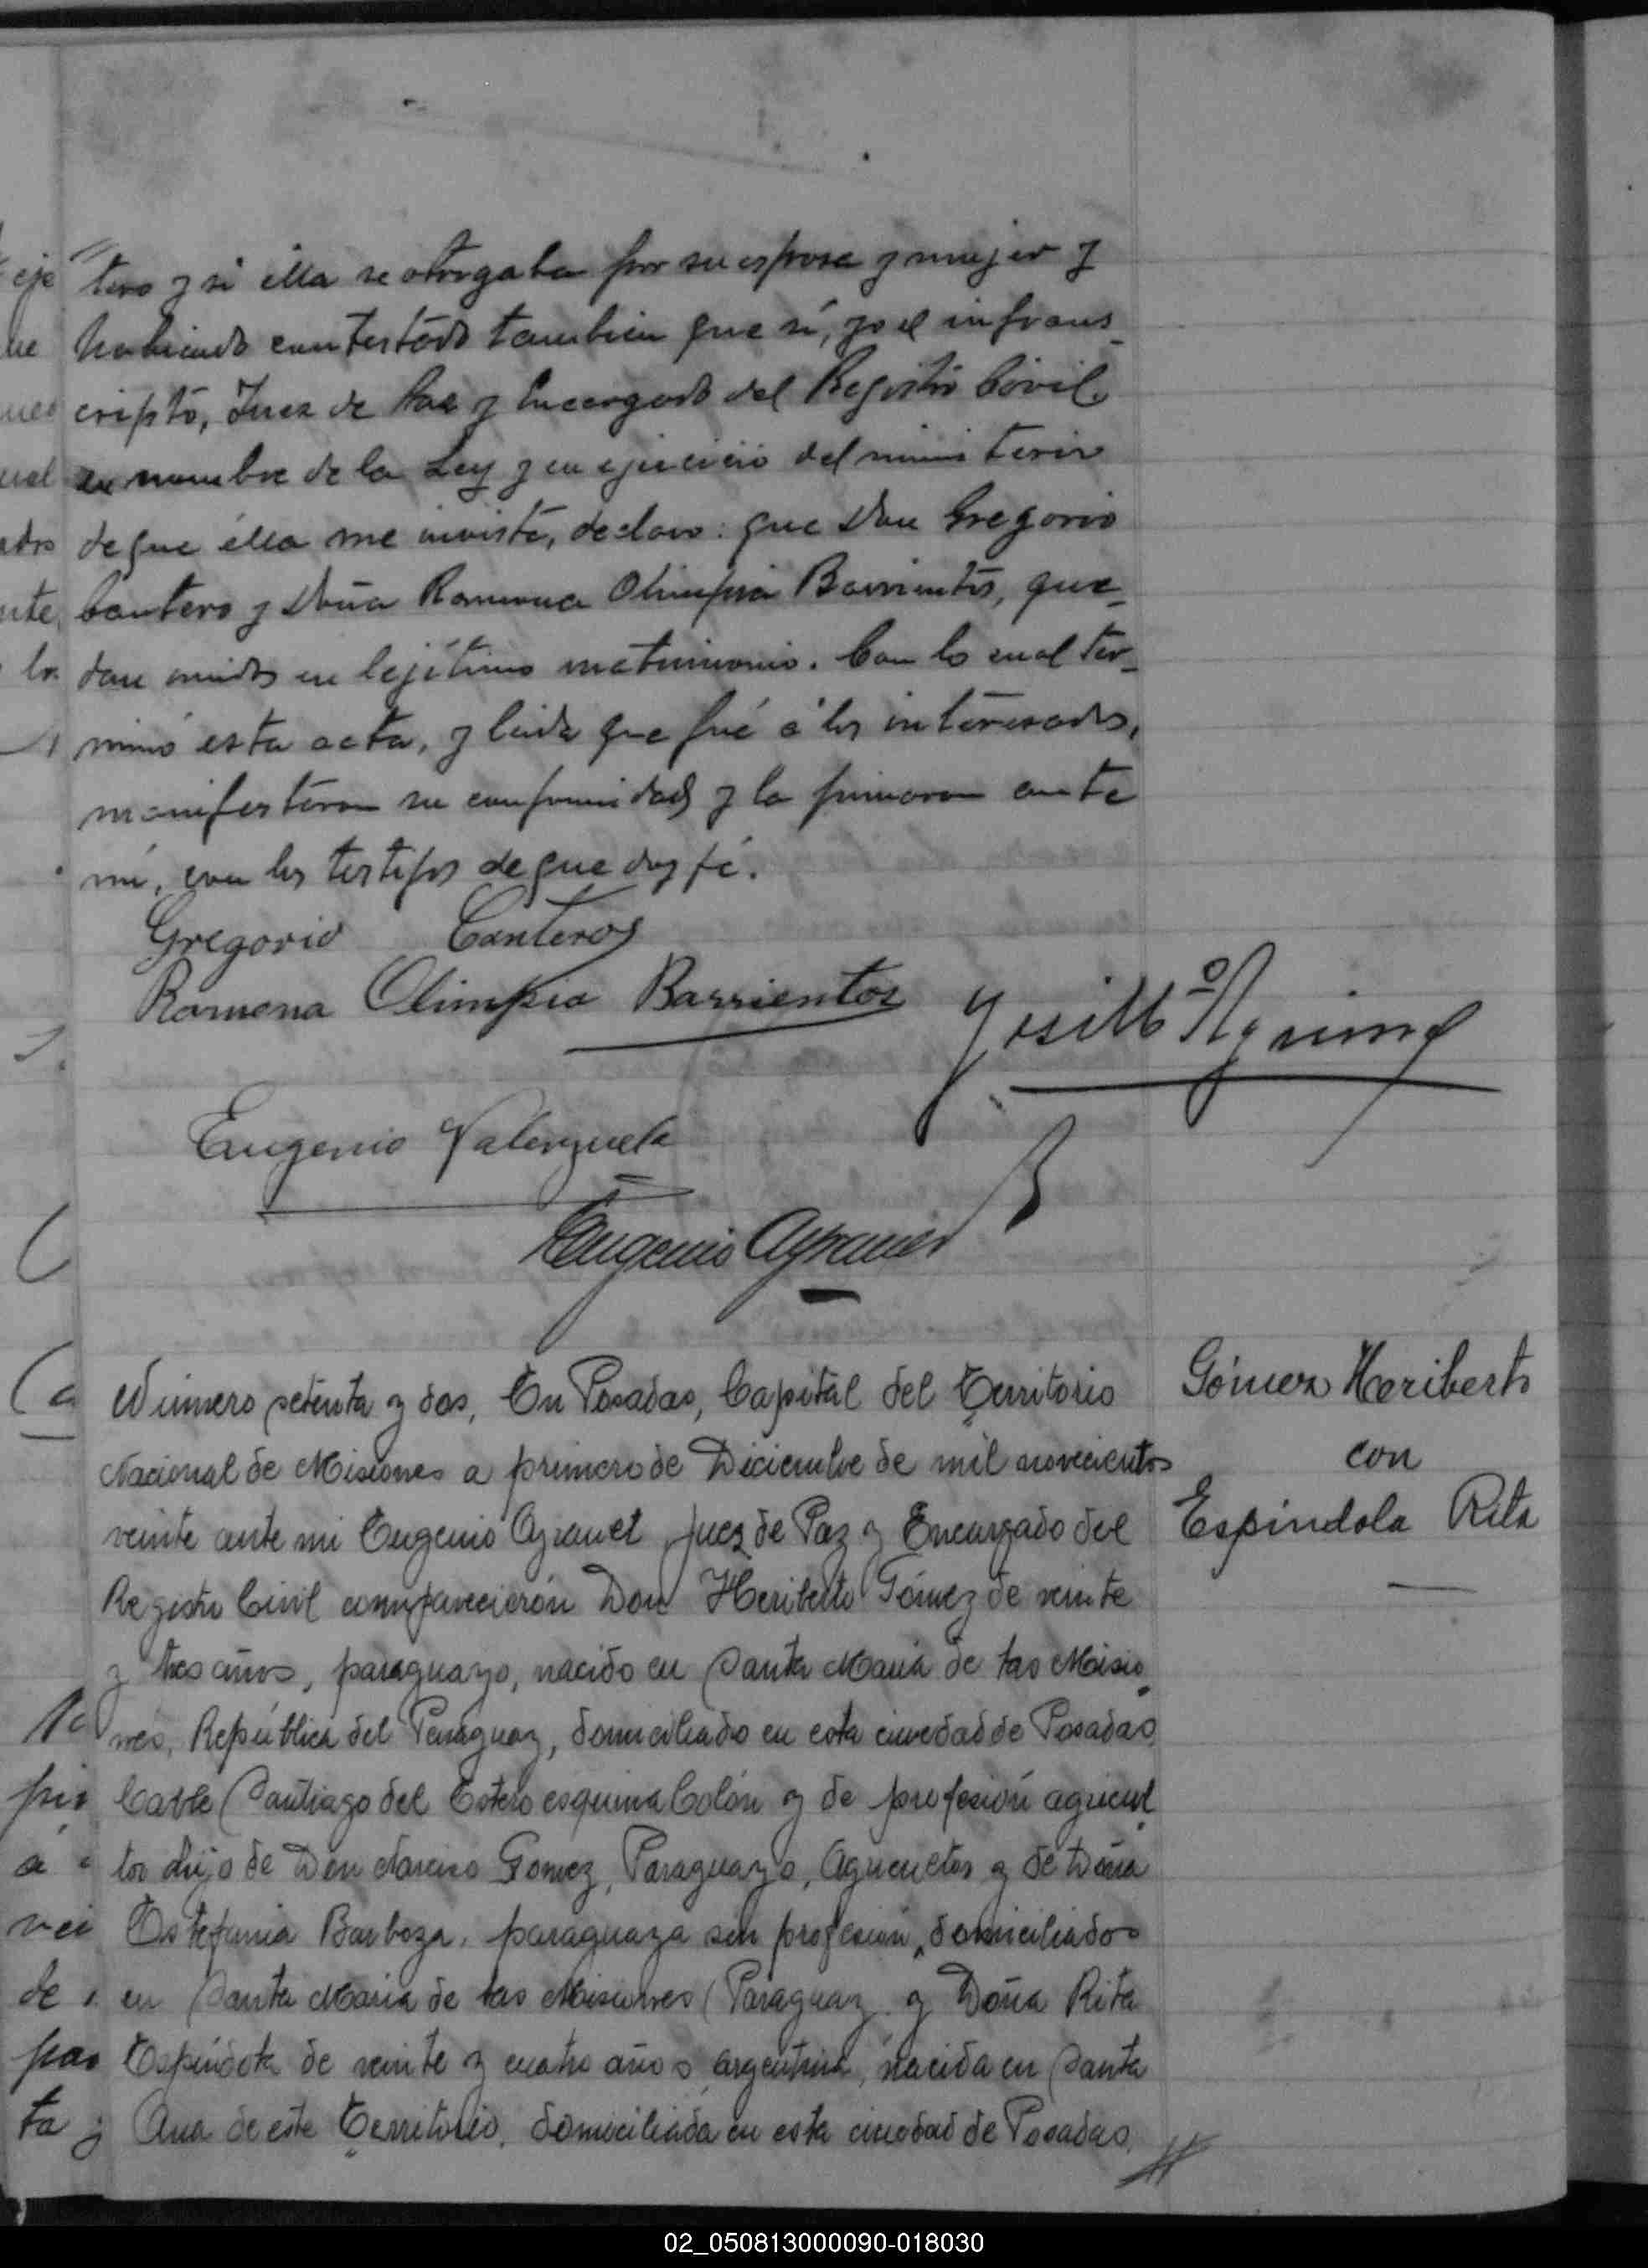 tero y si ella se otorgaba por su esposa y mujer y
habiendo contestado tambien que sí, yo el infrans_
cripto, Juez de Paz y Encargado del Registro Civil,
en nombre de la Ley y en ejercicio del ministerio
de que élla me inviste, declaro: que Don Gregorio
Cantero y Doña Ramona Olimpia Barrientos, que_
dan unidos en lejítimo matrimonio. Con lo cual ter_
minó esta acta, y leida que fué á los interesados,
manifestaron su conformidad y la firmaron ante
mí, con los testigos de que doy fé.
Gregorio Canteros
Ramona Olimpia Barrientos
Eugenio Valenzuela
Eugenio
Número setenta y dos, En Posadas, Capital del Territorio
Nacional de Misiones a primero de Diciembre de mil novecientos
veinte ante mi Eugenio Juez de Paz y Encargado del
Registro Civil comparecierón Don Heriberto Gómez de veinte
y tres años, paraguayo, nacido en Santa Maria de las Misio
nes, República del Paraguay, domiciliado en esta ciudad de Posadas
Calle Santiago del Estero esquina Colón y de profesión agricul
tor hijo de Don Narciso Gomez, Paraguayo, Agricultor y de Doña
Estefania Barboza, paraguaya sin profesión, domiciliados
en Santa Maria de las Misiones (Paraguay y Doña Rita
Espíndola de veinte y cuatro años argentina, nacida en Santa
Ana de este Territorio, domiciliada en esta ciudad de Posadas,
Gómez Heriberto
con
Espíndola Rita
02_050813000090-018030